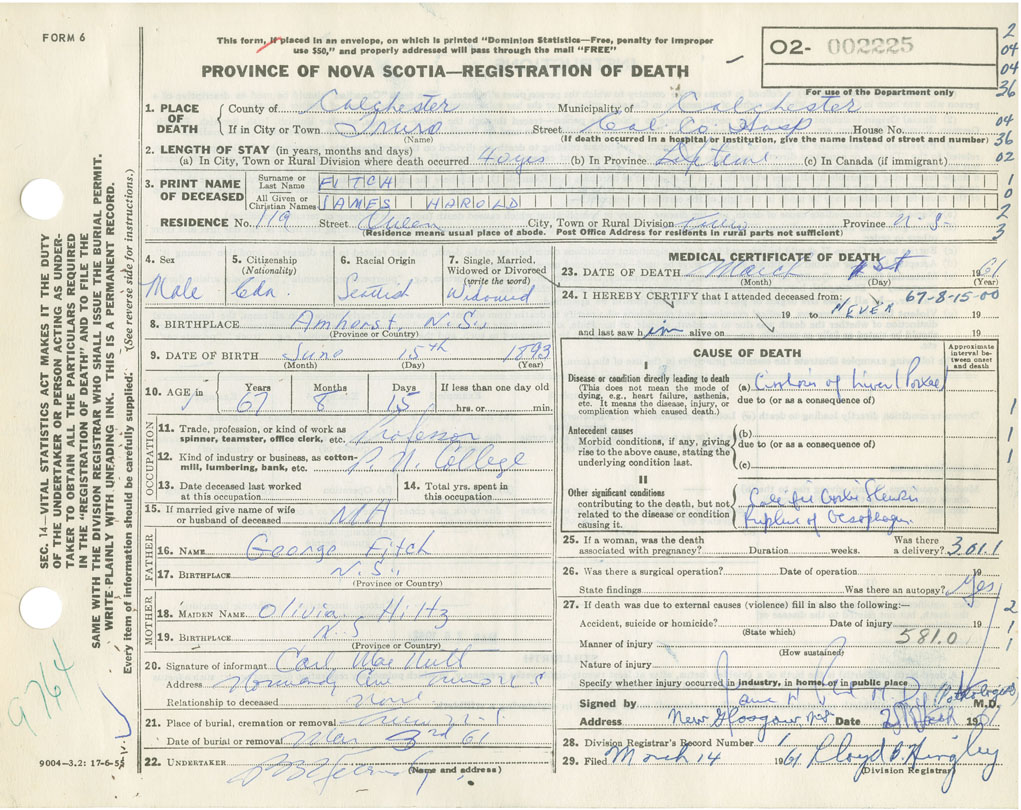 FORM 6
This form, if placed in an envelope, on which is printed "Dominion Statistics—Free, penalty for improper
use $50," and properly addressed will pass through the mail "FREE"
PROVINCE OF NOVA SCOTIA—REGISTRATION OF DEATH
O2- 002225
For use of the Department only
2
04
04
36
04
36
02
1
0
2
3
1. PLACE OF DEATH
County of Colchester Municipality of Colchester
If in City or Town Truro Street Col. Co. Hosp House No.
(Name) (If death occurred in a hospital or institution, give the name instead of street and number)
2. LENGTH OF STAY (in years, months and days)
(a) In City, Town or Rural Division where death occurred 40 yrs (b) In Province Lifetime (c) In Canada (if immigrant)
3. PRINT NAME OF DECEASED
Surname or Last Name FITCH
All Given or Christian Names JAMES HAROLD
RESIDENCE No. 119 Street Queen City, Town or Rural Division Truro Province N.S.
(Residence means usual place of abode. Post Office Address for residents in rural parts not sufficient)
4. Sex Male
5. Citizenship (Nationality) Cdn
6. Racial Origin Scottish
7. Single, Married, Widowed or Divorced (write the word) Widowed
8. BIRTHPLACE Amherst, N.S.
(Province or Country)
9. DATE OF BIRTH June 15th 1893
(Month) (Day) (Year)
10. AGE in Years 67 Months 8 Days 15 If less than one day old
hrs. or min.
OCCUPATION
11. Trade, profession, or kind of work as
spinner, teamster, office clerk, etc. Professor
12. Kind of industry or business, as cotton-
mill, lumbering, bank, etc. P. N. College
13. Date deceased last worked
at this occupation
14. Total yrs. spent in
this occupation
15. If married give name of wife
or husband of deceased
FATHER
16. NAME George Fitch
17. BIRTHPLACE N.S.
(Province or Country)
MOTHER
18. MAIDEN NAME Olivia Hiltz
19. BIRTHPLACE N.S
(Province or Country)
20. Signature of informant Carl MacNutt
Address Normandy Ave Truro N S
Relationship to deceased None
21. Place of burial, cremation or removal Truro N.S.
Date of burial or removal Mar 3rd 61
22. UNDERTAKER
(Name and address)
MEDICAL CERTIFICATE OF DEATH
23. DATE OF DEATH March 1st 1961
(Month) (Day) (Year)
24. I HEREBY CERTIFY that I attended deceased from: 67-8-15-00
19 to NEVER 19
and last saw him alive on 19
CAUSE OF DEATH
Approximate interval between onset and death
I
Disease or condition directly leading to death
(This does not mean the mode of
dying, e.g., heart failure, asthenia,
etc. It means the disease, injury, or
complication which caused death.)
(a) of Liver
due to (or as a consequence of)
Antecedent causes
Morbid conditions, if any, giving
rise to the above cause, stating the
underlying condition last.
(b)
due to (or as a consequence of)
(c)
II
Other significant conditions
contributing to the death, but not
related to the disease or condition
causing it.
of Oesophagus
1
1
1
25. If a woman, was the death
associated with pregnancy? Duration weeks. Was there
a delivery? 3.01.1
26. Was there a surgical operation? Date of operation 19
State findings Was there an autopsy? Yes
27. If death was due to external causes (violence) fill in also the following:—
Accident, suicide or homicide? Date of injury 19
(State which)
Manner of injury 581.0
(How sustained)
Nature of injury
Specify whether injury occurred in industry, in home, or in public place
2
1
1
Signed by (Pathologist) M.D.
Address New Glasgow N.S. Date 2 March 19
28. Division Registrar's Record Number 1
29. Filed March 14 1961 Lloyd
(Division Registrar)
SEC. 14—VITAL STATISTICS ACT MAKES IT THE DUTY
OF THE UNDERTAKER OR PERSON ACTING AS UNDER-
TAKER TO OBTAIN ALL THE PARTICULARS REQUIRED
IN THE "REGISTRATION OF DEATH" AND TO FILE THE
SAME WITH THE DIVISION REGISTRAR WHO SHALL ISSUE THE BURIAL PERMIT.
WRITE PLAINLY WITH UNFADING INK. THIS IS A PERMANENT RECORD.
Every item of information should be carefully supplied. (See reverse side for instructions.)
9764
9004—3.2: 17-6-5